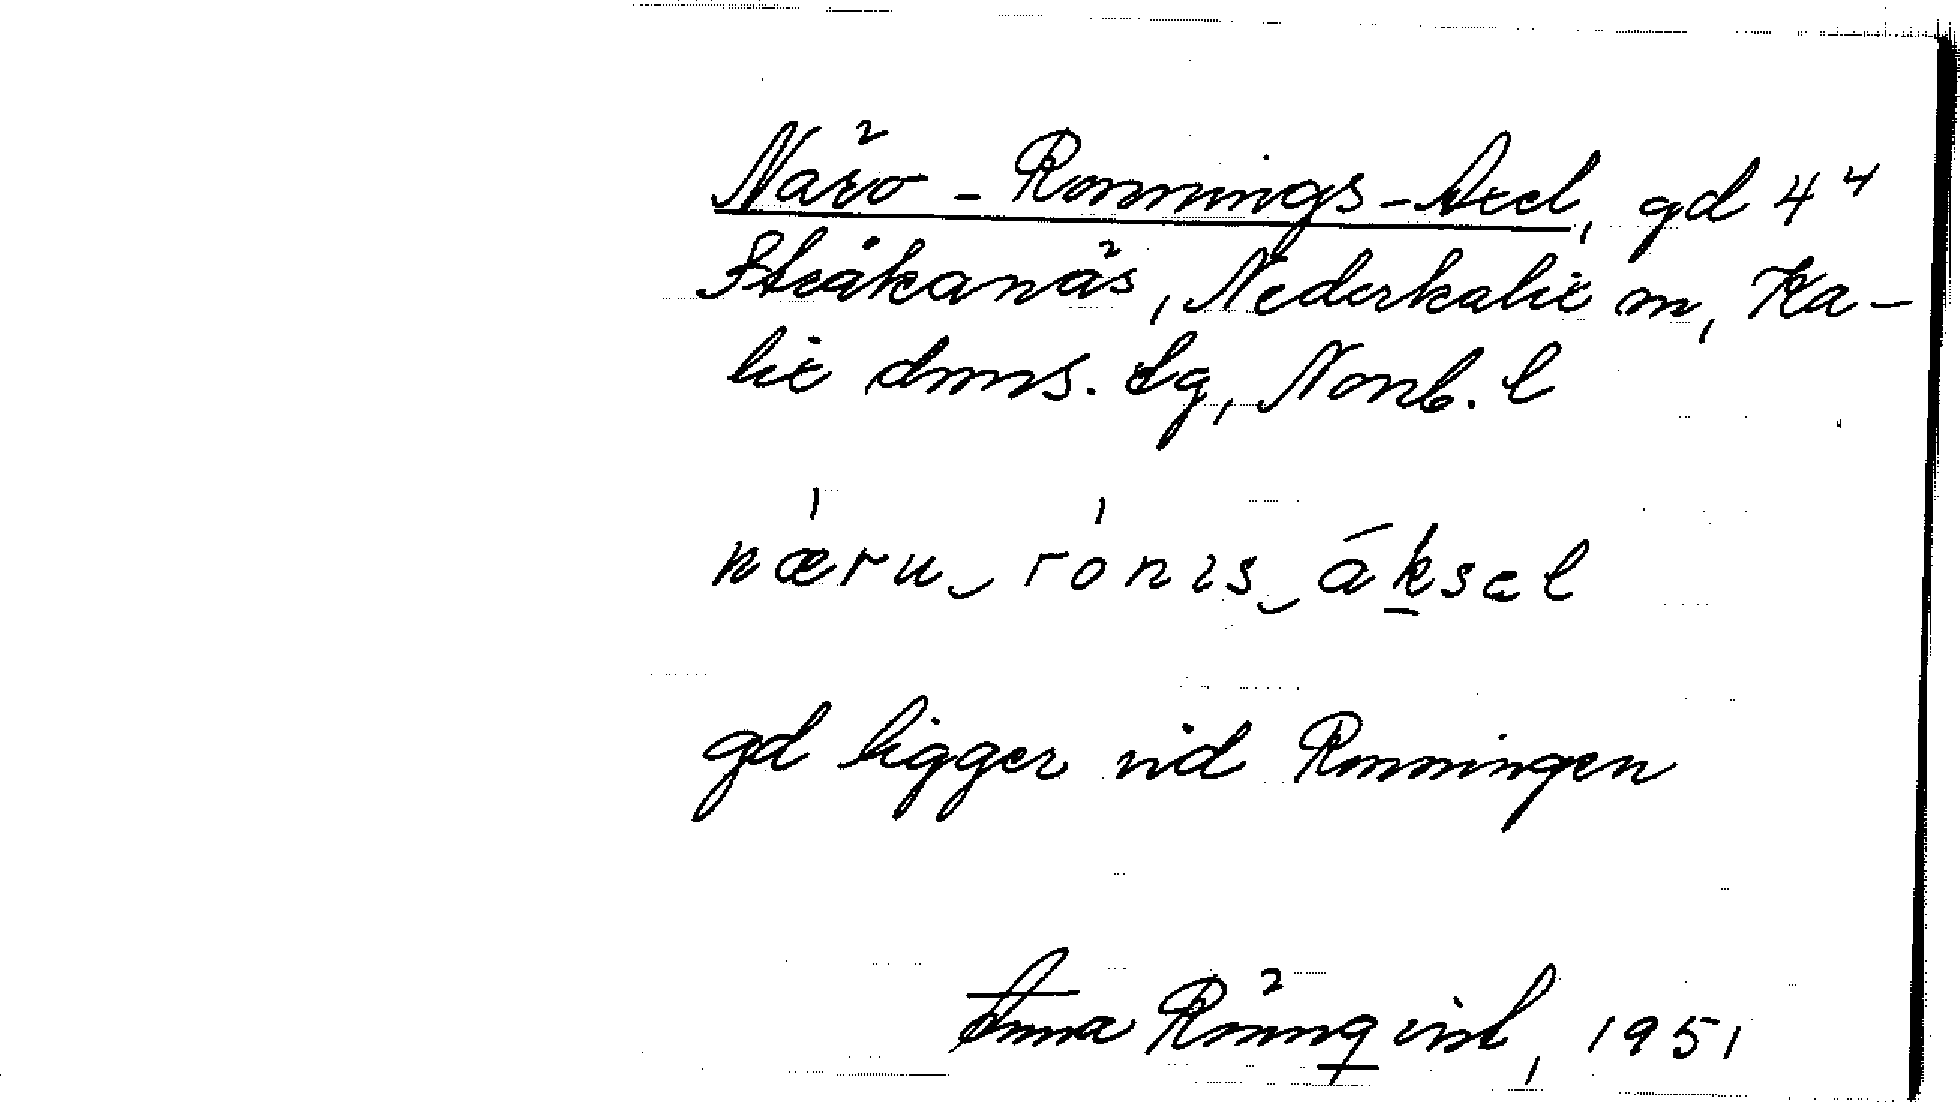 Närö-Ronnings-Axel, gd 4⁴
Stråkanäs, Nederkalix m, Ka-
lix dms. tg, Norrb. l
næru rónıs áksəl
gd ligger vid Ronningen
Anna Rönnqvist, 1951